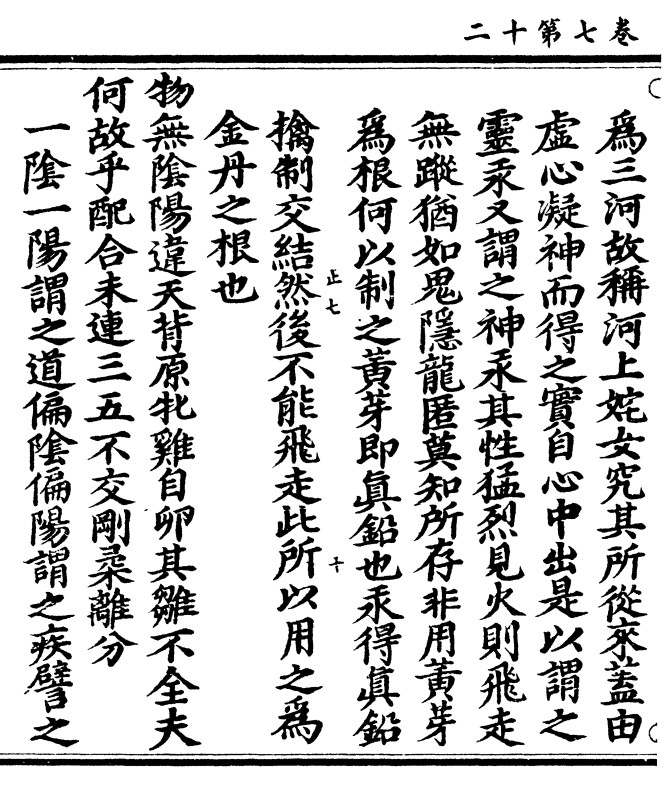 卷七第十二
為三河故稱河上姹女究其所從來蓋由
虛心凝神而得之實自心中出是以謂之
靈汞又謂之神汞其性猛烈見火則飛走
無蹤猶如鬼隱龍匿莫知所存非用黃芽
為根何以制之黃芽即真鉛也汞得真鉛
正七
十
擒制交結然後不能飛走此所以用之為
金丹之根也
物無陰陽違天背原牝雞自卵其雛不全夫
何故乎配合未連三五不交剛柔離分
一陰一陽謂之道偏陰偏陽謂之疾譬之